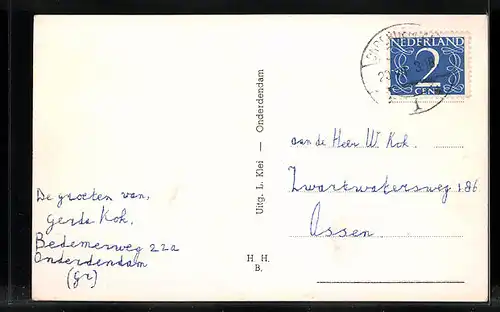 NEDERLAND
2
CENT
aan de Heer W. Kok.
Zwartwatersweg 186
Assen.
De groeten van,
Gerda Kok.
Bedemerweg 22a
Onderdendam
(Gr)
Uitg. L. Klei — Onderdendam
H. H.
B.